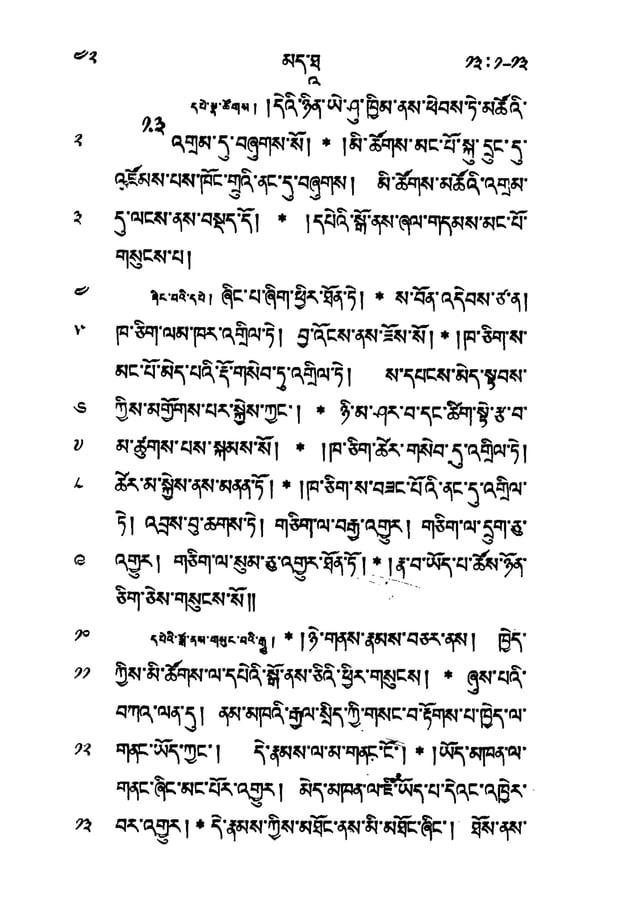 ༤༢ མད་ཐཱ ༡༣:༡-༡༣
དཔེ་སྣ་ཚོགས། །དེའི་ཉིན་ཡེ་ཤུ་ཁྱིམ་ནས་ཕེབས་ཏེ་མཚོའི་
༡.༣ འགྲམ་དུ་བཞུགས་སོ། * །མི་ཚོགས་མང་པོ་སྐུ་དྲུང་དུ་
༢
འཛོམས་པས་ཁོང་གྲུའི་ནང་དུ་བཞུགས། མི་ཚོགས་མཚོའི་འགྲམ་
༣ དུ་ལངས་ནས་བསྡད་དོ། * །དཔེའི་སྒོ་ནས་ཞལ་གདམས་མང་པོ་
གསུངས་པ།
༤ ཞིང་པའི་དཔེ། ཞིང་པ་ཞིག་ཕྱིར་ཐོན་ཏེ། * ས་བོན་འདེབས་ཙ་ན།
༥ ཁ་ཅིག་ལམ་ཁར་འགྲིལ་ཏེ། བྱ་འོངས་ནས་ཟོས་སོ། * །ཁ་ཅིག་ས་
མང་པོ་མེད་པའི་རྡོ་གསེབ་ཏུ་འགྲིལ་ཏེ། ས་དཔངས་མེད་སྟབས་
༦ ཀྱིས་མགྱོགས་པར་སྐྱེས་ཀྱང་། * ཉི་མ་ཤར་བ་དང་ཚིག་སྟེ་རྩ་བ་
༧ མ་ཚུགས་པས་སྐམས་སོ། * །ཁ་ཅིག་ཚེར་གསེབ་ཏུ་འགྲིལ་ཏེ།
༨ ཚེར་མ་སྐྱེས་ནས་མནན་ཏོ། * །ཁ་ཅིག་ས་བཟང་པོའི་ནང་དུ་འགྲིལ་
ཏེ། འབྲས་བུ་ཆགས་ཏེ། གཅིག་ལ་བརྒྱ་འགྱུར། གཅིག་ལ་དྲུག་ཅུ་
༩ འགྱུར། གཅིག་ལ་སུམ་ཅུ་འགྱུར་ཐོན་ཏོ། * །རྣ་བ་ཡོད་པ་ཚོས་ཉོན་
ཅིག་ཅེས་གསུངས་སོ༎
༡༠ དཔེའི་སྒོ་ནས་གསུང་བའི་རྒྱུ། * །ཉེ་གནས་རྣམས་བཅར་ནས། ཁྱེད་
༡༡ ཀྱིས་མི་ཚོགས་ལ་དཔེའི་སྒོ་ནས་ཅིའི་ཕྱིར་གསུངས། * ཞུས་པའི་
བཀའ་ལན་དུ། ནམ་མཁའི་རྒྱལ་སྲིད་ཀྱི་གསང་བ་རྟོགས་པ་ཁྱེད་ལ་
༡༢ གནང་ཡོད་ཀྱང་། དེ་རྣམས་ལ་མ་གནང་ངོ་། * །ཡོད་མཁན་ལ་
གནང་ཞིང་མང་པོར་འགྱུར། མེད་མཁན་ལ་ཇི་ཡོད་པ་དེའང་འཁྱེར་
༡༣ བར་འགྱུར། * དེ་རྣམས་ཀྱིས་མཐོང་ནས་མི་མཐོང་ཞིང་། ཐོས་ནས་